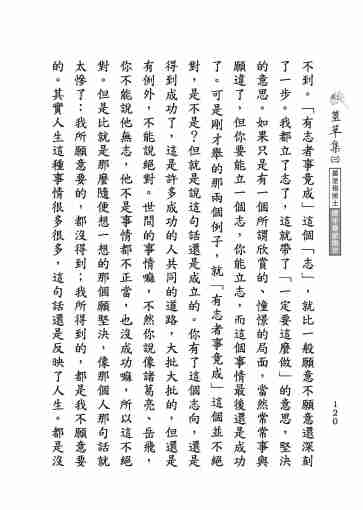 萱草集㈡
120
不到。「有志者事竟成」這個「志」，就比一般願意不願意還深刻
了一步。我都立了志了，這就帶了「一定要這麼做」的意思，堅決
的意思。如果只是有一個所謂欣賞的、憧憬的局面，當然常常事與
願違了，但你要能立一個志，你能立志，而這個事情最後還是成功
了。可是剛才舉的那兩個例子，就「有志者事竟成」這個並不絕
對，是不是？但就是說這句話還是成立的。你有了這個志向，還是
得到成功了，這是許多成功的人共同的道路，大批大批的。但還是
有例外，不能說絕對。世間的事情嘛，不然你說像諸葛亮、岳飛，
你不能說他無志，他不是事情都不正當，也沒成功嘛，所以這不絕
對。但是比就是那麼隨便想一想的那個願堅決，像那個人那句話就
太慘了：我所願意要的，都沒得到；我所得到的，都是我不願意要
的。其實人生這種事情很多很多，這句話還是反映了人生。都是沒